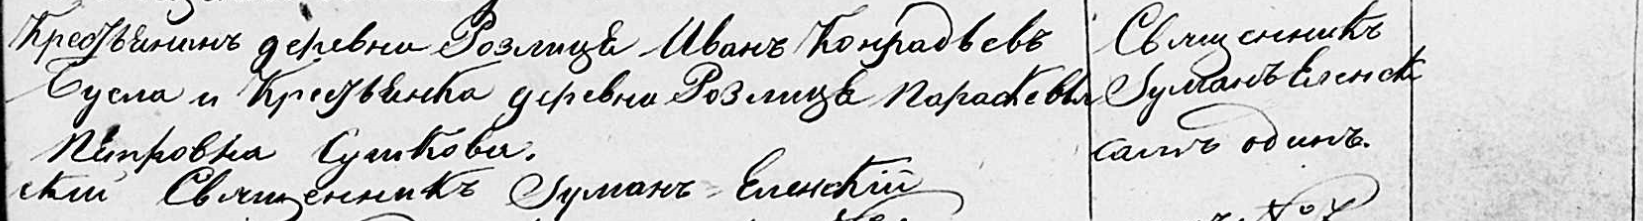 Крестьянинъ деревни Розлицѣ Иванъ Кондратьевъ
Бусла и Крестьянка деревни Розлицѣ Параскевія
Петровна Сушкова.
скій Священникъ Гуманъ Еленскій
Священникъ
Гуманъ Еленск
самъ одинъ.
№